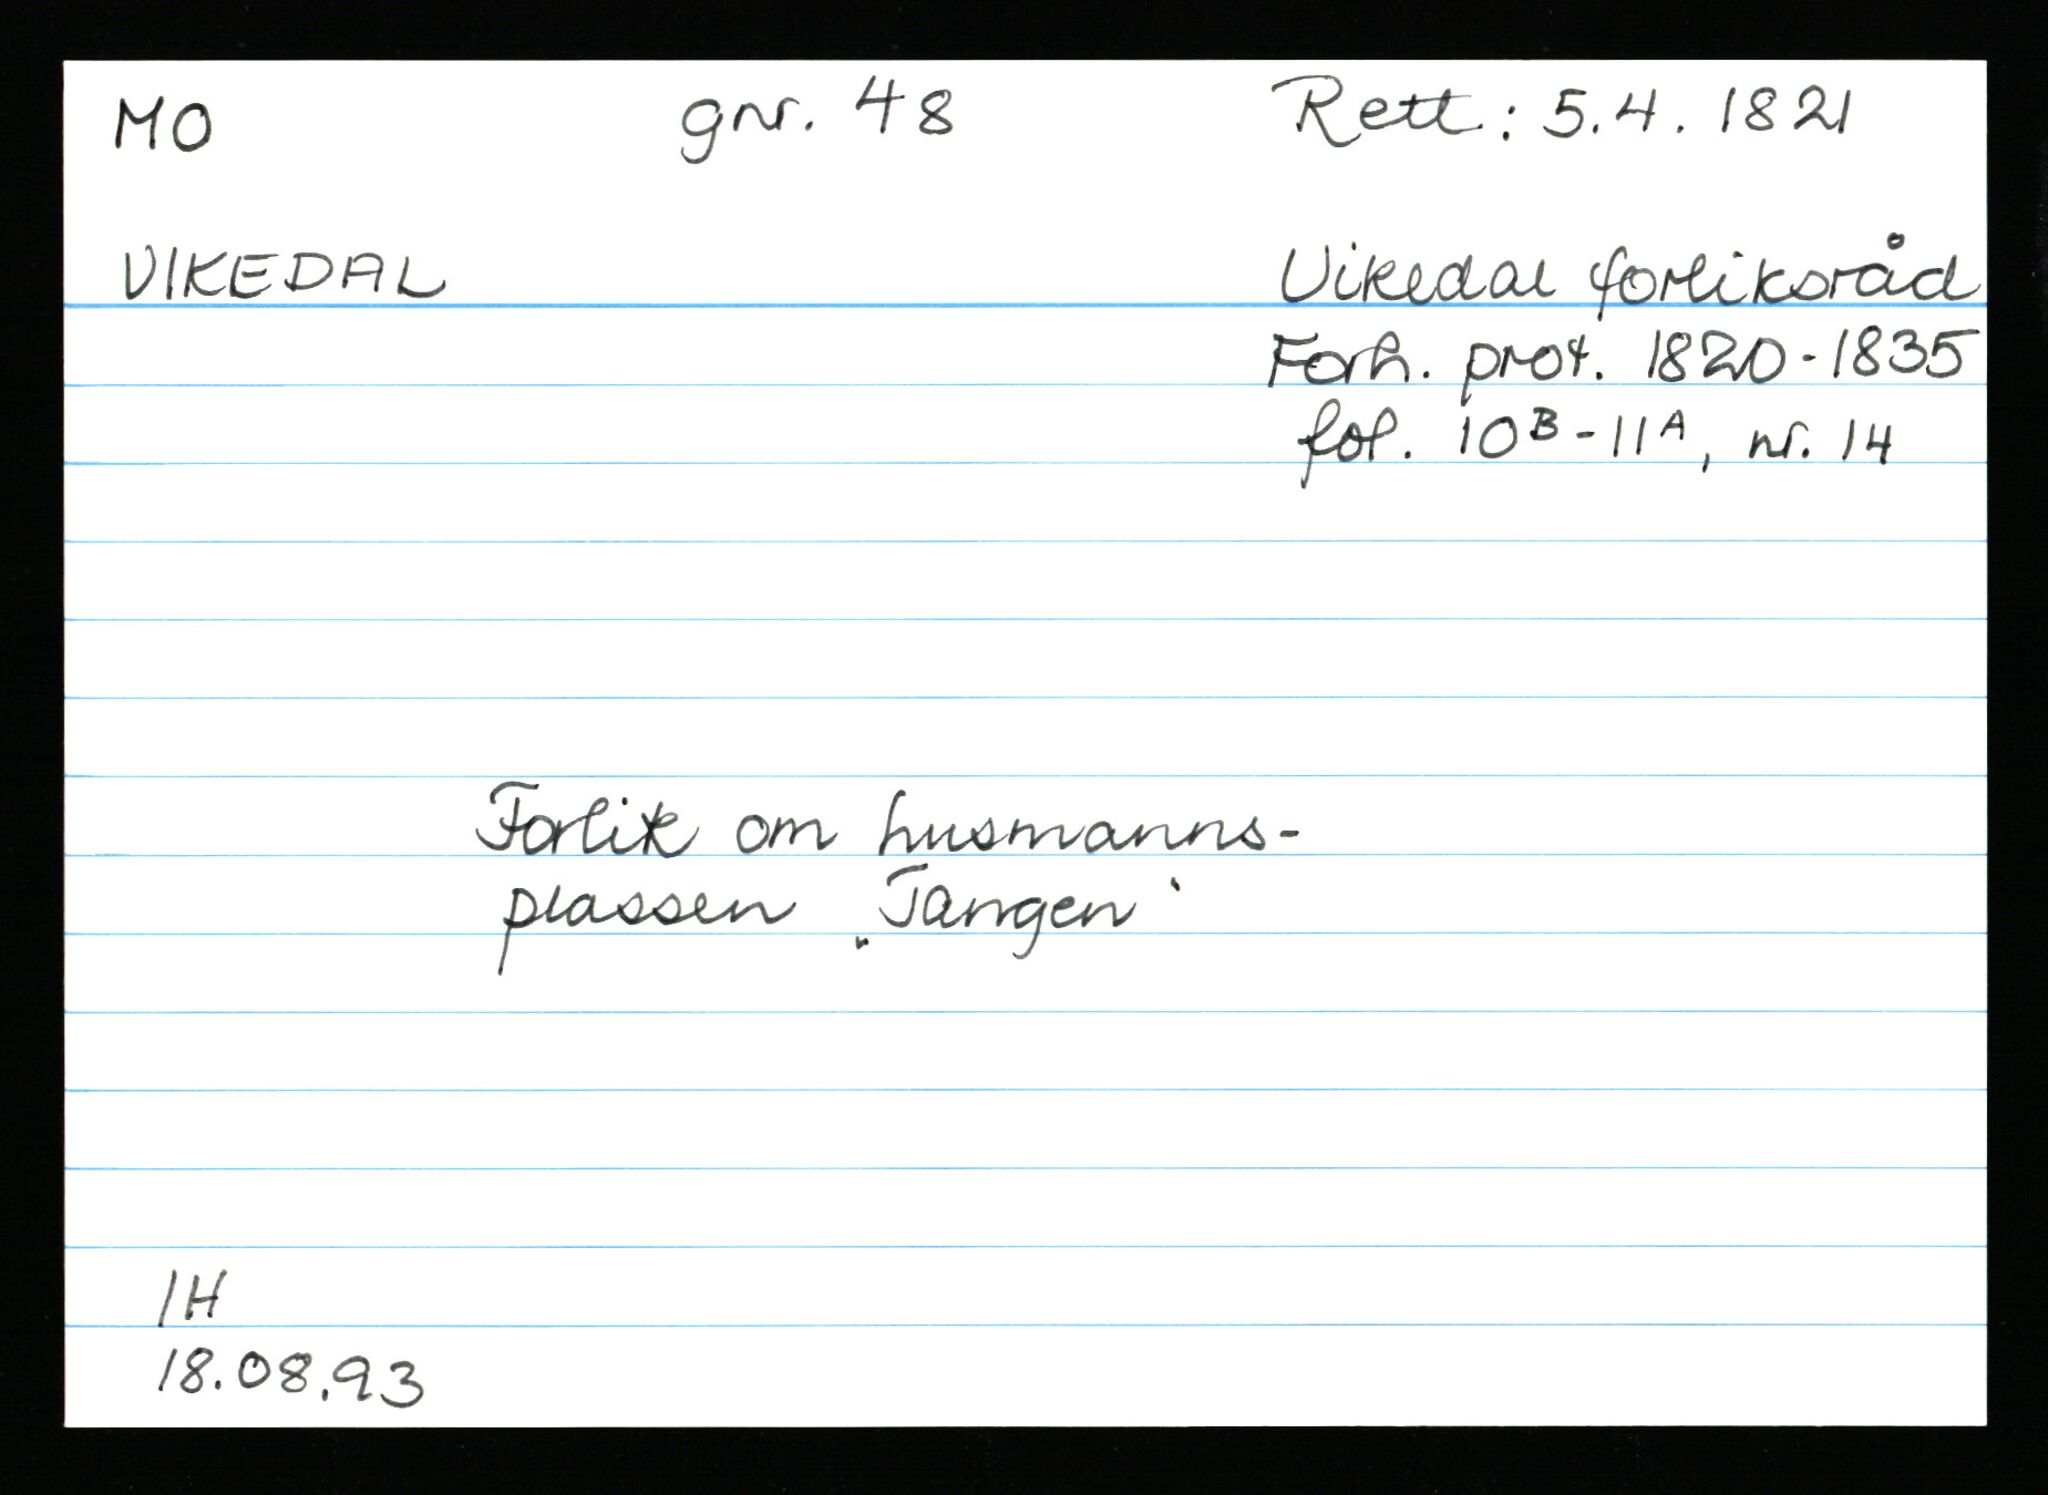 MO gnr. 48 Rett: 5.4. 1821
VIKEDAL Vikedal forliksråd
Forh. prot. 1820-1835
fol. 10ᴮ-11ᴬ, nr. 14
Forlik om husmanns-
plassen „Tangen"
IH
18.08.93